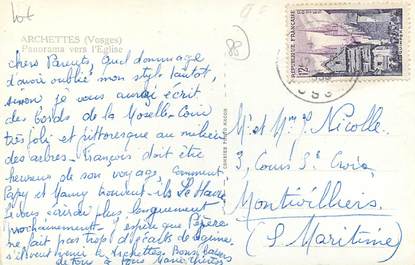 lot
88
ARCHETTES (Vosges)
Panorama vers l'Eglise
chers Parents, quel dommage
d'avoir oublié mon stylo tantôt,
sinon je vous aurais écrit
des bords de la Moselle. Coin
très joli et pittoresque au milieu
des arbres. François doit être
heureux de son voyage. Comment
Papy et Mamy trouvent-ils Le Havre
Je vous écrirai plus longuement
prochainement. J'espère que Pépère
ne fait pas trop d'écarts de régime
s'il veut venir à Archettes. Bons Baisers
de tous à tous
REPUBLIQUE FRANÇAISE
12F
POSTES
M. et Mme J. Nicolle.
3, Cours Ste Croix,
Montivilliers
(S. Maritime)